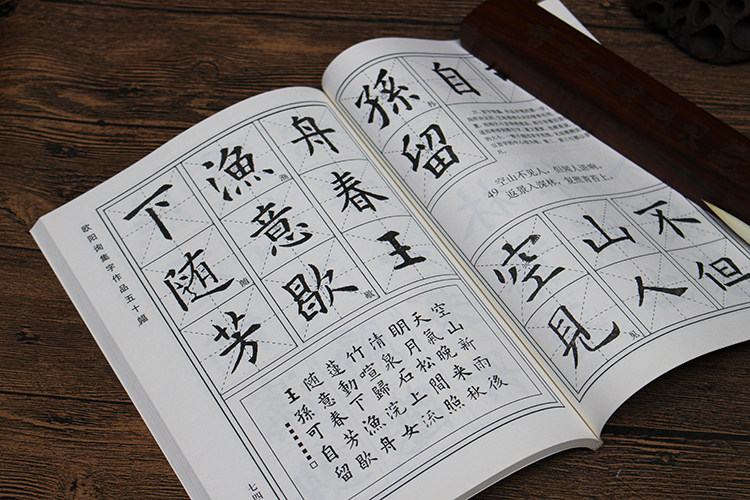 欧阳询集字作品五十篇
下漁舟
渔
随意春
随
芳歇王
歇
空山新雨後
天氣晚来秋
明月松間照
清泉石上流
竹喧歸浣女
蓮動下漁舟
随意春芳歇
王孫可自留
七四
孫自
孙
留
49 空山不见人，但闻人语响。
返景入深林，复照青苔上。
空山不
見人但
见